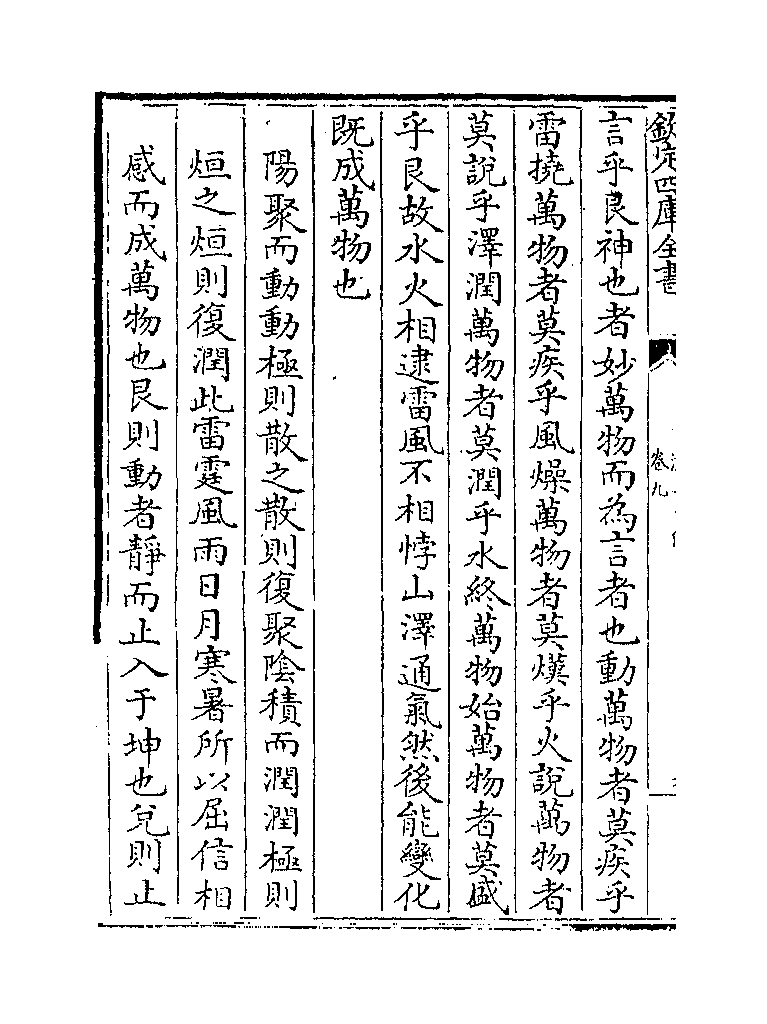 欽定四庫全書
卷九
言乎艮神也者妙萬物而為言者也動萬物者莫疾乎
雷撓萬物者莫疾乎風燥萬物者莫熯乎火說萬物者
莫說乎澤潤萬物者莫潤乎水終萬物始萬物者莫盛
乎艮故水火相逮雷風不相悖山澤通氣然後能變化
既成萬物也
陽聚而動動極則散之散則復聚陰積而潤潤極則
烜之烜則復潤此雷霆風雨日月寒暑所以屈信相
感而成萬物也艮則動者靜而止入于坤也兌則止